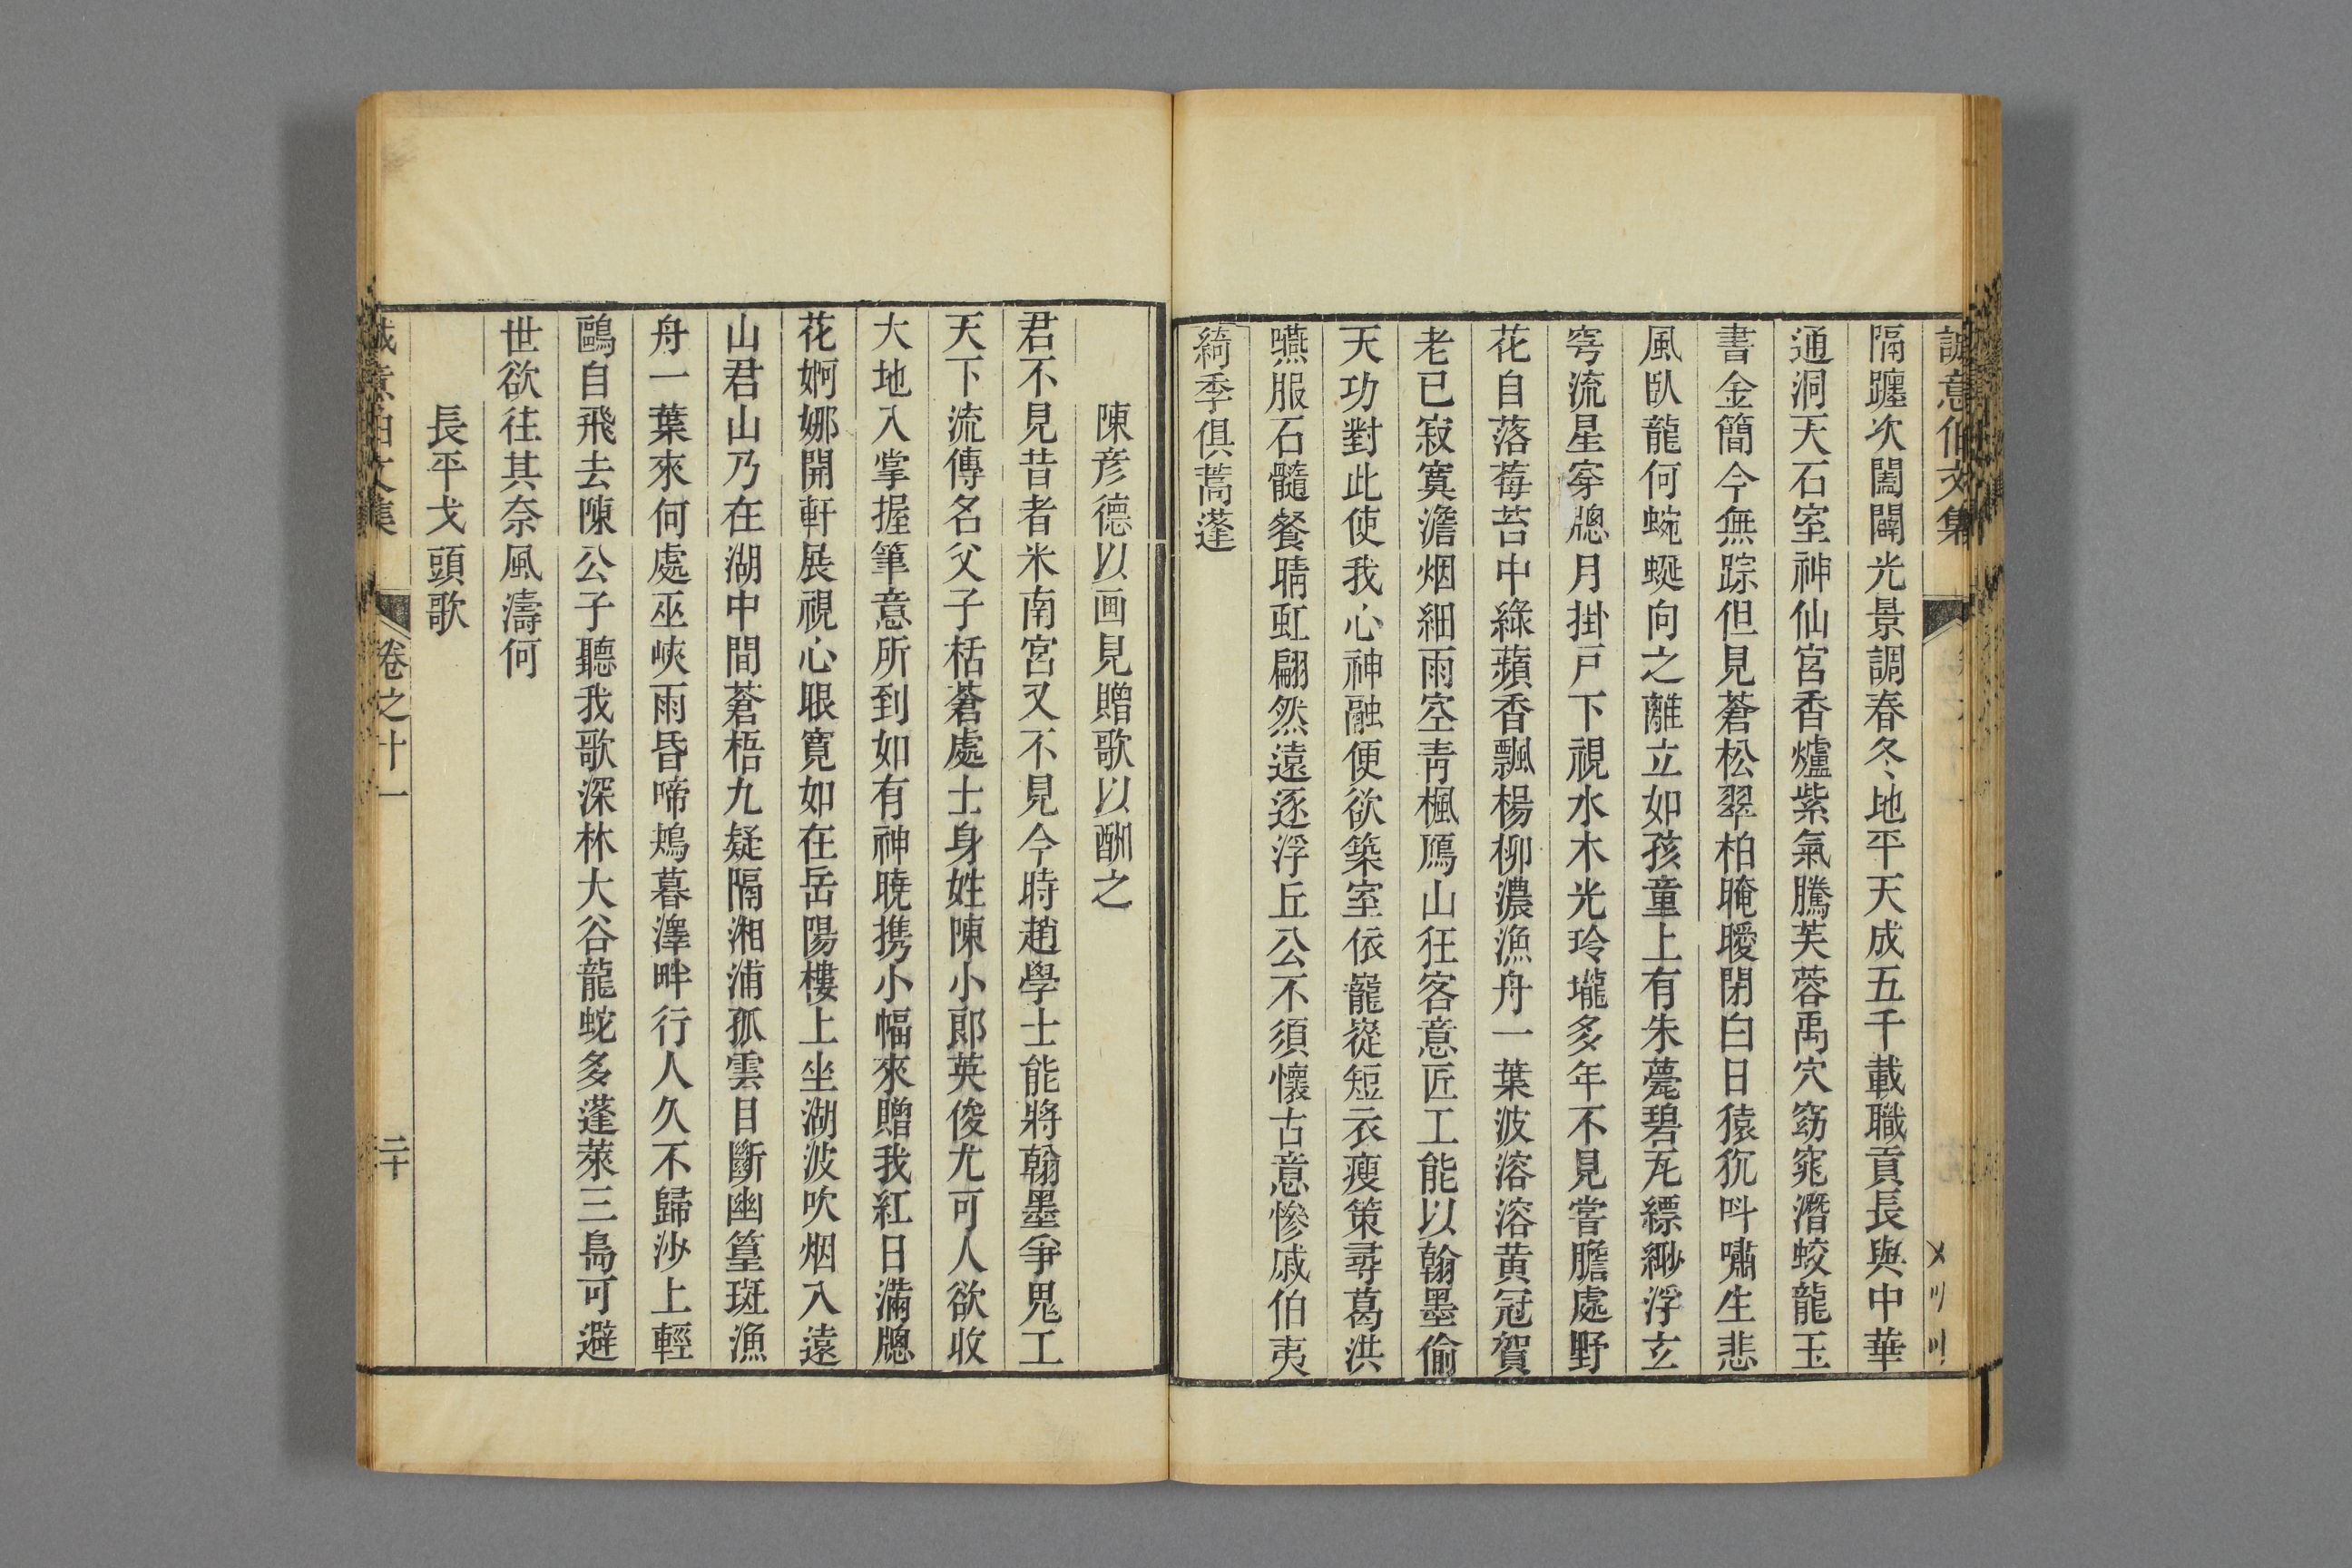 誠意伯文集
隔躔次闔闢光景調春冬地平天成五千載職貢長與中華
通洞天石室神仙宮香爐紫氣騰芙蓉禹穴窈窕潛蛟龍玉
書金簡今無踪但見蒼松翠柏晻曖閉白日猿狖呌嘯生悲
風臥龍何蜿蜒向之離立如孩童上有朱甍碧瓦縹緲浮玄
穹流星穿牕月掛戸下視水木光玲瓏多年不見嘗膽處野
花自落莓苔中綠蘋香飄楊柳濃漁舟一葉波溶溶黄冠賀
老已寂寞澹烟細雨空靑楓鴈山狂客意匠工能以翰墨偷
天功對此使我心神融便欲築室依龍嵸短衣瘦策尋葛洪
嚥服石髓餐晴虹翩然遠逐浮丘公不須懷古意慘戚伯夷
綺季俱蒿蓬
陳彦德以画見贈歌以酬之
君不見昔者米南宮又不見今時趙學士能將翰墨爭鬼工
天下流傳名父子栝蒼處士身姓陳小郎英俊尤可人欲收
大地入掌握筆意所到如有神曉携小幅來贈我紅日滿牕
花婀娜開軒展視心眼寛如在岳陽樓上坐湖波吹烟入遠
山君山乃在湖中間蒼梧九疑隔湘浦孤雲目斷幽篁斑漁
舟一葉來何處巫峽雨昏啼鴂暮澤畔行人久不歸沙上輕
鷗自飛去陳公子聽我歌深林大谷龍蛇多蓬萊三島可避
世欲往其奈風濤何
長平戈頭歌
誠意伯文集 卷之十一 二十